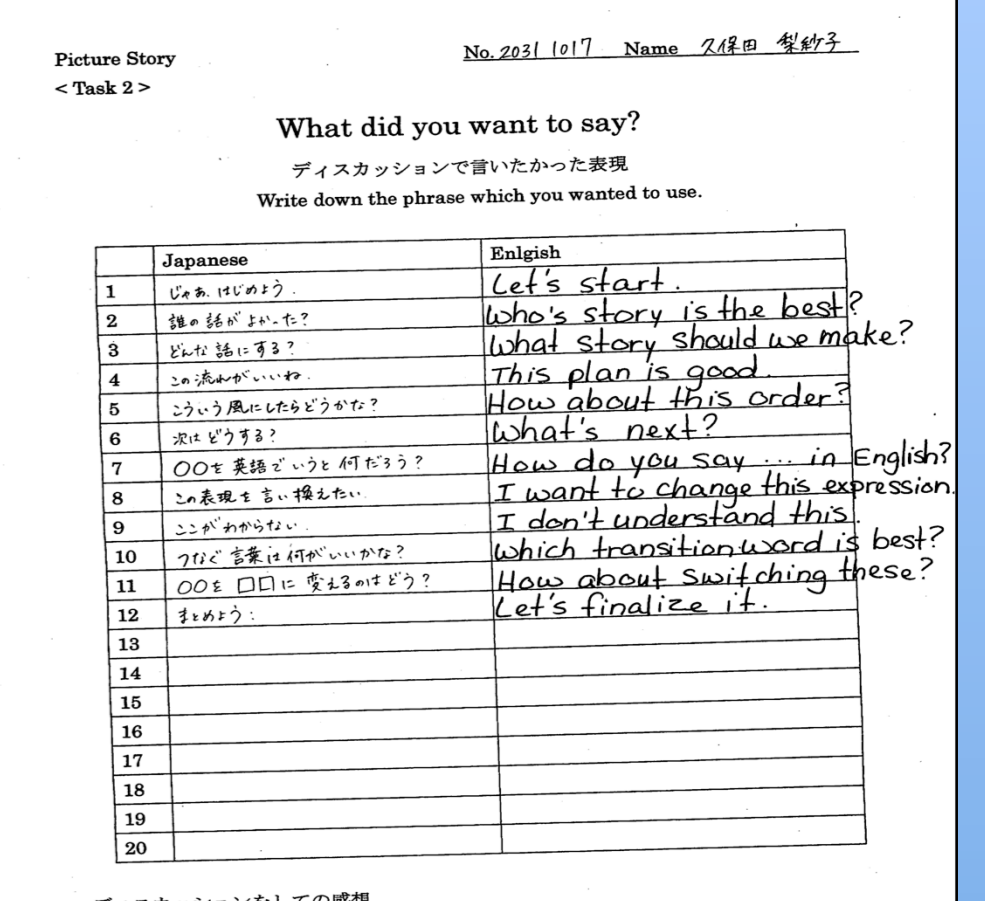 Picture Story
No. 20311017 Name 久保田 梨紗子
< Task 2 >
What did you want to say?
ディスカッションで言いたかった表現
Write down the phrase which you wanted to use.
Japanese Enlgish
1 じゃあ、はじめよう. Let's start.
2 誰の話がよかった? Who's story is the best?
3 どんな話にする? What story should we make?
4 この流れがいいね. This plan is good.
5 こういう風にしたらどうかな? How about this order?
6 次はどうする? What's next?
7 〇〇を英語でいうと何だろう? How do you say ... in English?
8 この表現を言い換えたい. I want to change this expression.
9 ここがわからない. I don't understand this.
10 つなぐ言葉は何がいいかな? Which transition word is best?
11 〇〇を□□に変えるのはどう? How about switching these?
12 まとめよう. Let's finalize it.
13
14
15
16
17
18
19
20
ディスカッションをしての感想